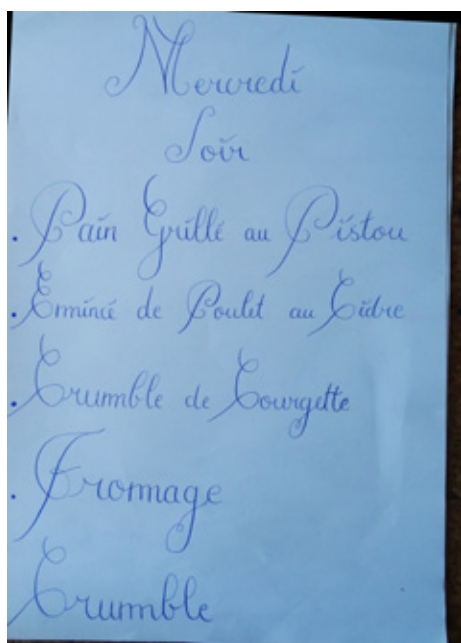 Mercredi
Soir
. Pain Grillé au Pistou
. Émincé de Poulet au Cidre
. Crumble de Courgette
. Fromage
Crumble